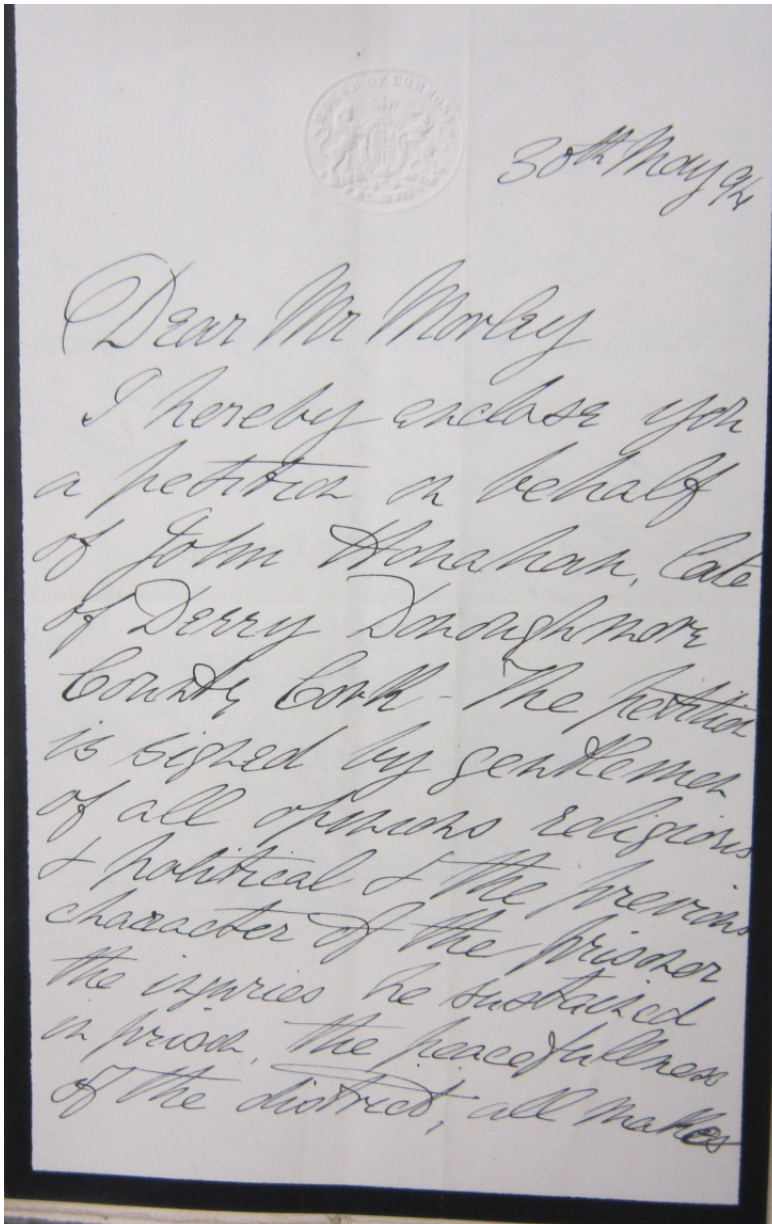 HOUSE OF COMMONS
30th May 94
Dear Mr Morley
I hereby enclose you
a petition on behalf
of John Honahan, late
of Derry Donoughmore
County Cork - The petition
is signed by gentlemen
of all opinions religious
& political & the previous
character of the prisoner
the injuries he sustained
in prison, the peacefullness
of the district, all makes